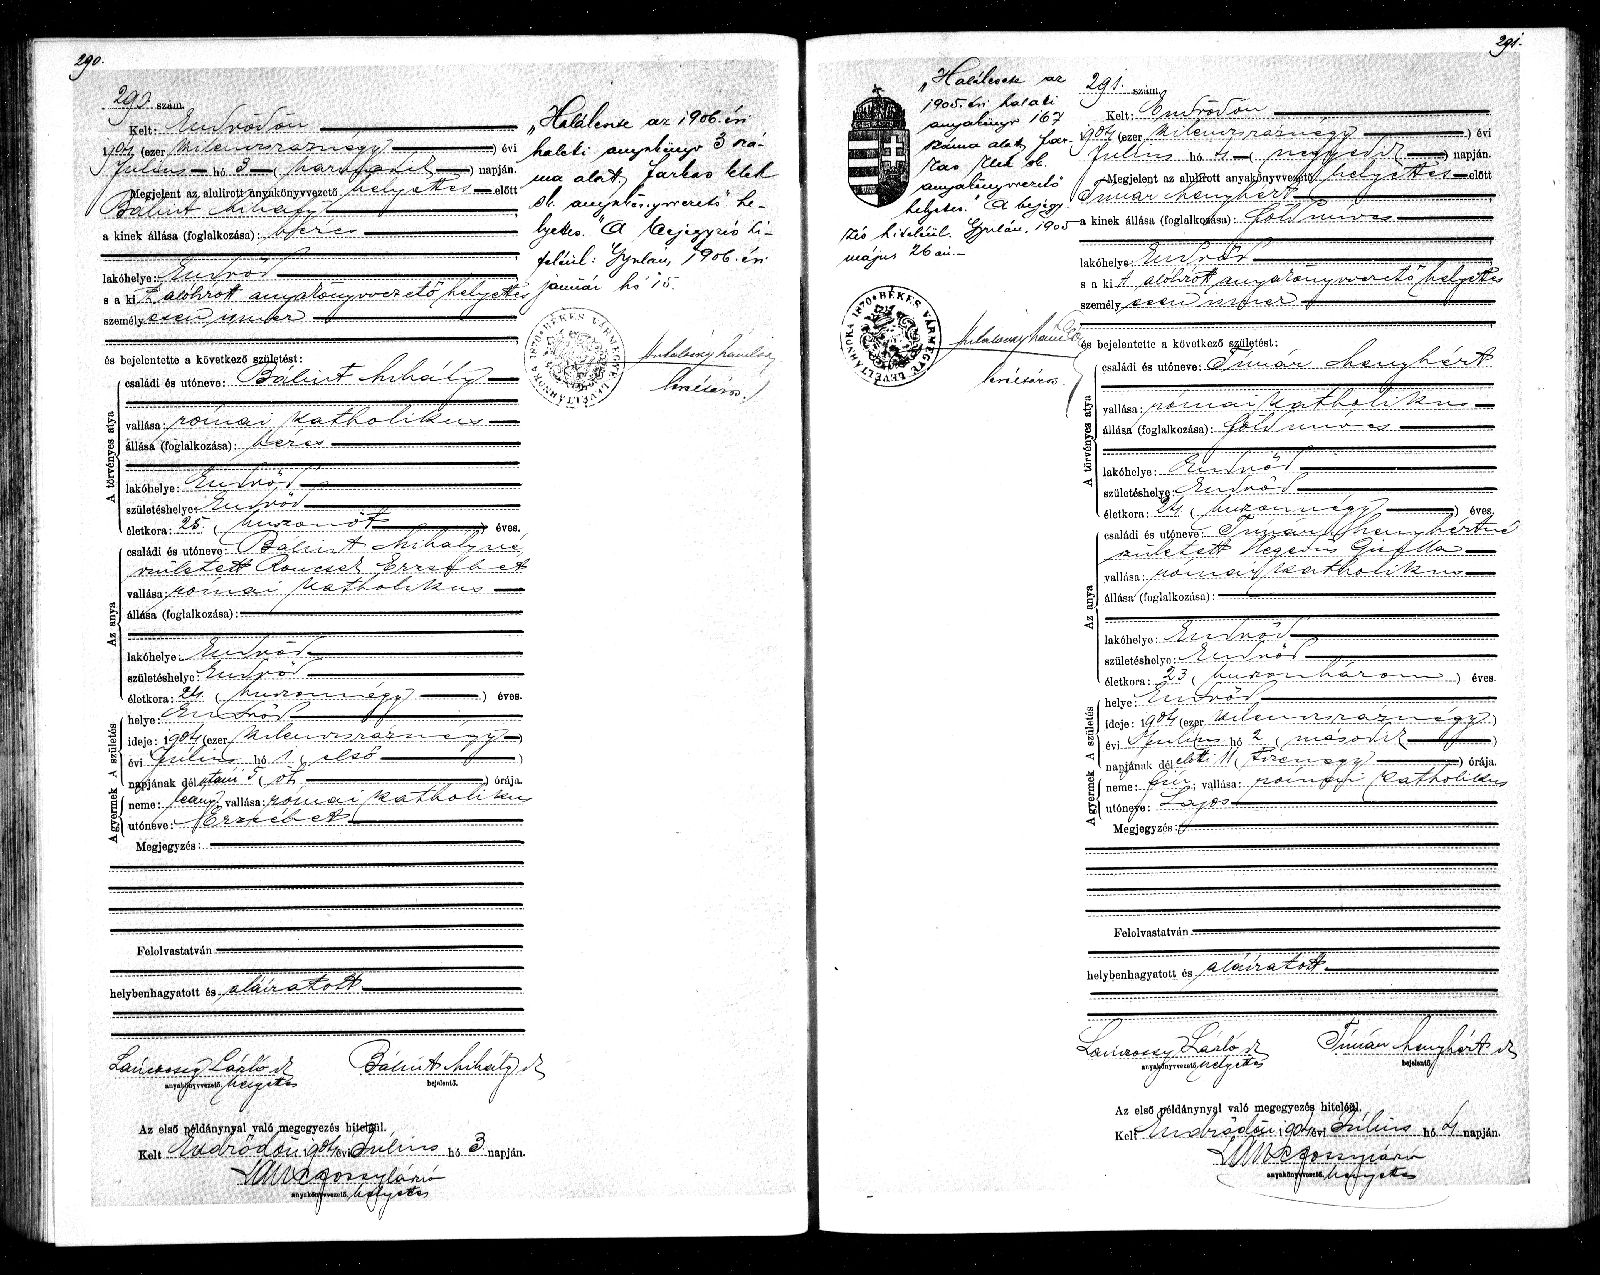 290.
290. szám.
Kelt: Endrődön
1904 (ezer kilencszáznégy) évi
Július hó 3 (harmadik) napján.
Megjelent az alulirott anyakönyvvezető helyettes előtt
Bálint Mihály
a kinek állása (foglalkozása): béres
lakóhelye: Endrőd
s a kit alólirott anyakönyvvezető helyettes
személyesen ismer
és bejelentette a következő születést:
A törvényes atya
családi és utóneve: Bálint Mihály
vallása: római katholikus
állása (foglalkozása): béres
lakóhelye: Endrőd
születéshelye: Endrőd
életkora: 25 (huszonöt) éves.
Az anya
családi és utóneve: Bálint Mihályné
született Roncsek Erzsébet
vallása: római katholikus
állása (foglalkozása):
lakóhelye: Endrőd
születéshelye: Endrőd
életkora: 24 (huszonnégy) éves.
A születés
helye: Endrőd
ideje: 1904 (ezer kilencszáznégy)
évi Július hó 1 (első)
napjának délutáni 5 (öt) órája.
A gyermek
neme: leány; vallása: római katholikus
utóneve: Erzsébet
Megjegyzés:
Felolvastatván
helybenhagyatott és aláiratott
Lánczossy László sk
anyakönyvvezető helyettes
Bálint Mihály sk
bejelentő.
Az első példánynyal való megegyezés hiteléül.
Kelt Endrődön 1904 évi Július hó 3 napján.
Lánczossy László
anyakönyvvezető helyettes
„Haláleset az 1906. évi
halálti anyakönyv 3 szá-
ma alatt, Farkas Elek
sk. anyakönyvvezető he-
lyettes." A bejegyzés hi-
teléül: Gyulán, 1906. évi
január hó 15.
BÉKÉS VÁRMEGYE LEVÉLTÁRNOKA 1870
levéltáros.
291.
„Haláleset az
1905. évi halálti
anyakönyv 167
száma alatt, Far-
kas Elek sk.
anyakönyvvezető
helyettes." A bejegy-
zés hiteléül. Gyulán, 1905
május 26án.
BÉKÉS VÁRMEGYE LEVÉLTÁRNOKA 1870
levéltáros.
291. szám.
Kelt: Endrődön
1904 (ezer kilencszáznégy) évi
Július hó 4 (negyedik) napján.
Megjelent az alulirott anyakönyvvezető helyettes előtt
Timár Menyhért
a kinek állása (foglalkozása): földműves
lakóhelye: Endrőd
s a kit alólirott anyakönyvvezető helyettes
személyesen ismer
és bejelentette a következő születést:
A törvényes atya
családi és utóneve: Timár Menyhért
vallása: római katholikus
állása (foglalkozása): földműves
lakóhelye: Endrőd
születéshelye: Endrőd
életkora: 24 (huszonnégy) éves.
Az anya
családi és utóneve: Timár Menyhértné
született Hegedűs Gizella
vallása: római katholikus
állása (foglalkozása):
lakóhelye: Endrőd
születéshelye: Endrőd
életkora: 23 (huszonhárom) éves.
A születés
helye: Endrőd
ideje: 1904 (ezer kilencszáznégy)
évi Július hó 2 (második)
napjának délelőtti 11 (tizenegy) órája.
A gyermek
neme: fiú; vallása: római katholikus
utóneve: Lajos
Megjegyzés:
Felolvastatván
helybenhagyatott és aláiratott
Lánczossy László sk
anyakönyvvezető helyettes
Timár Menyhért sk
bejelentő.
Az első példánynyal való megegyezés hiteléül.
Kelt Endrődön 1904 évi Július hó 4 napján.
Lánczossy László
anyakönyvvezető helyettes